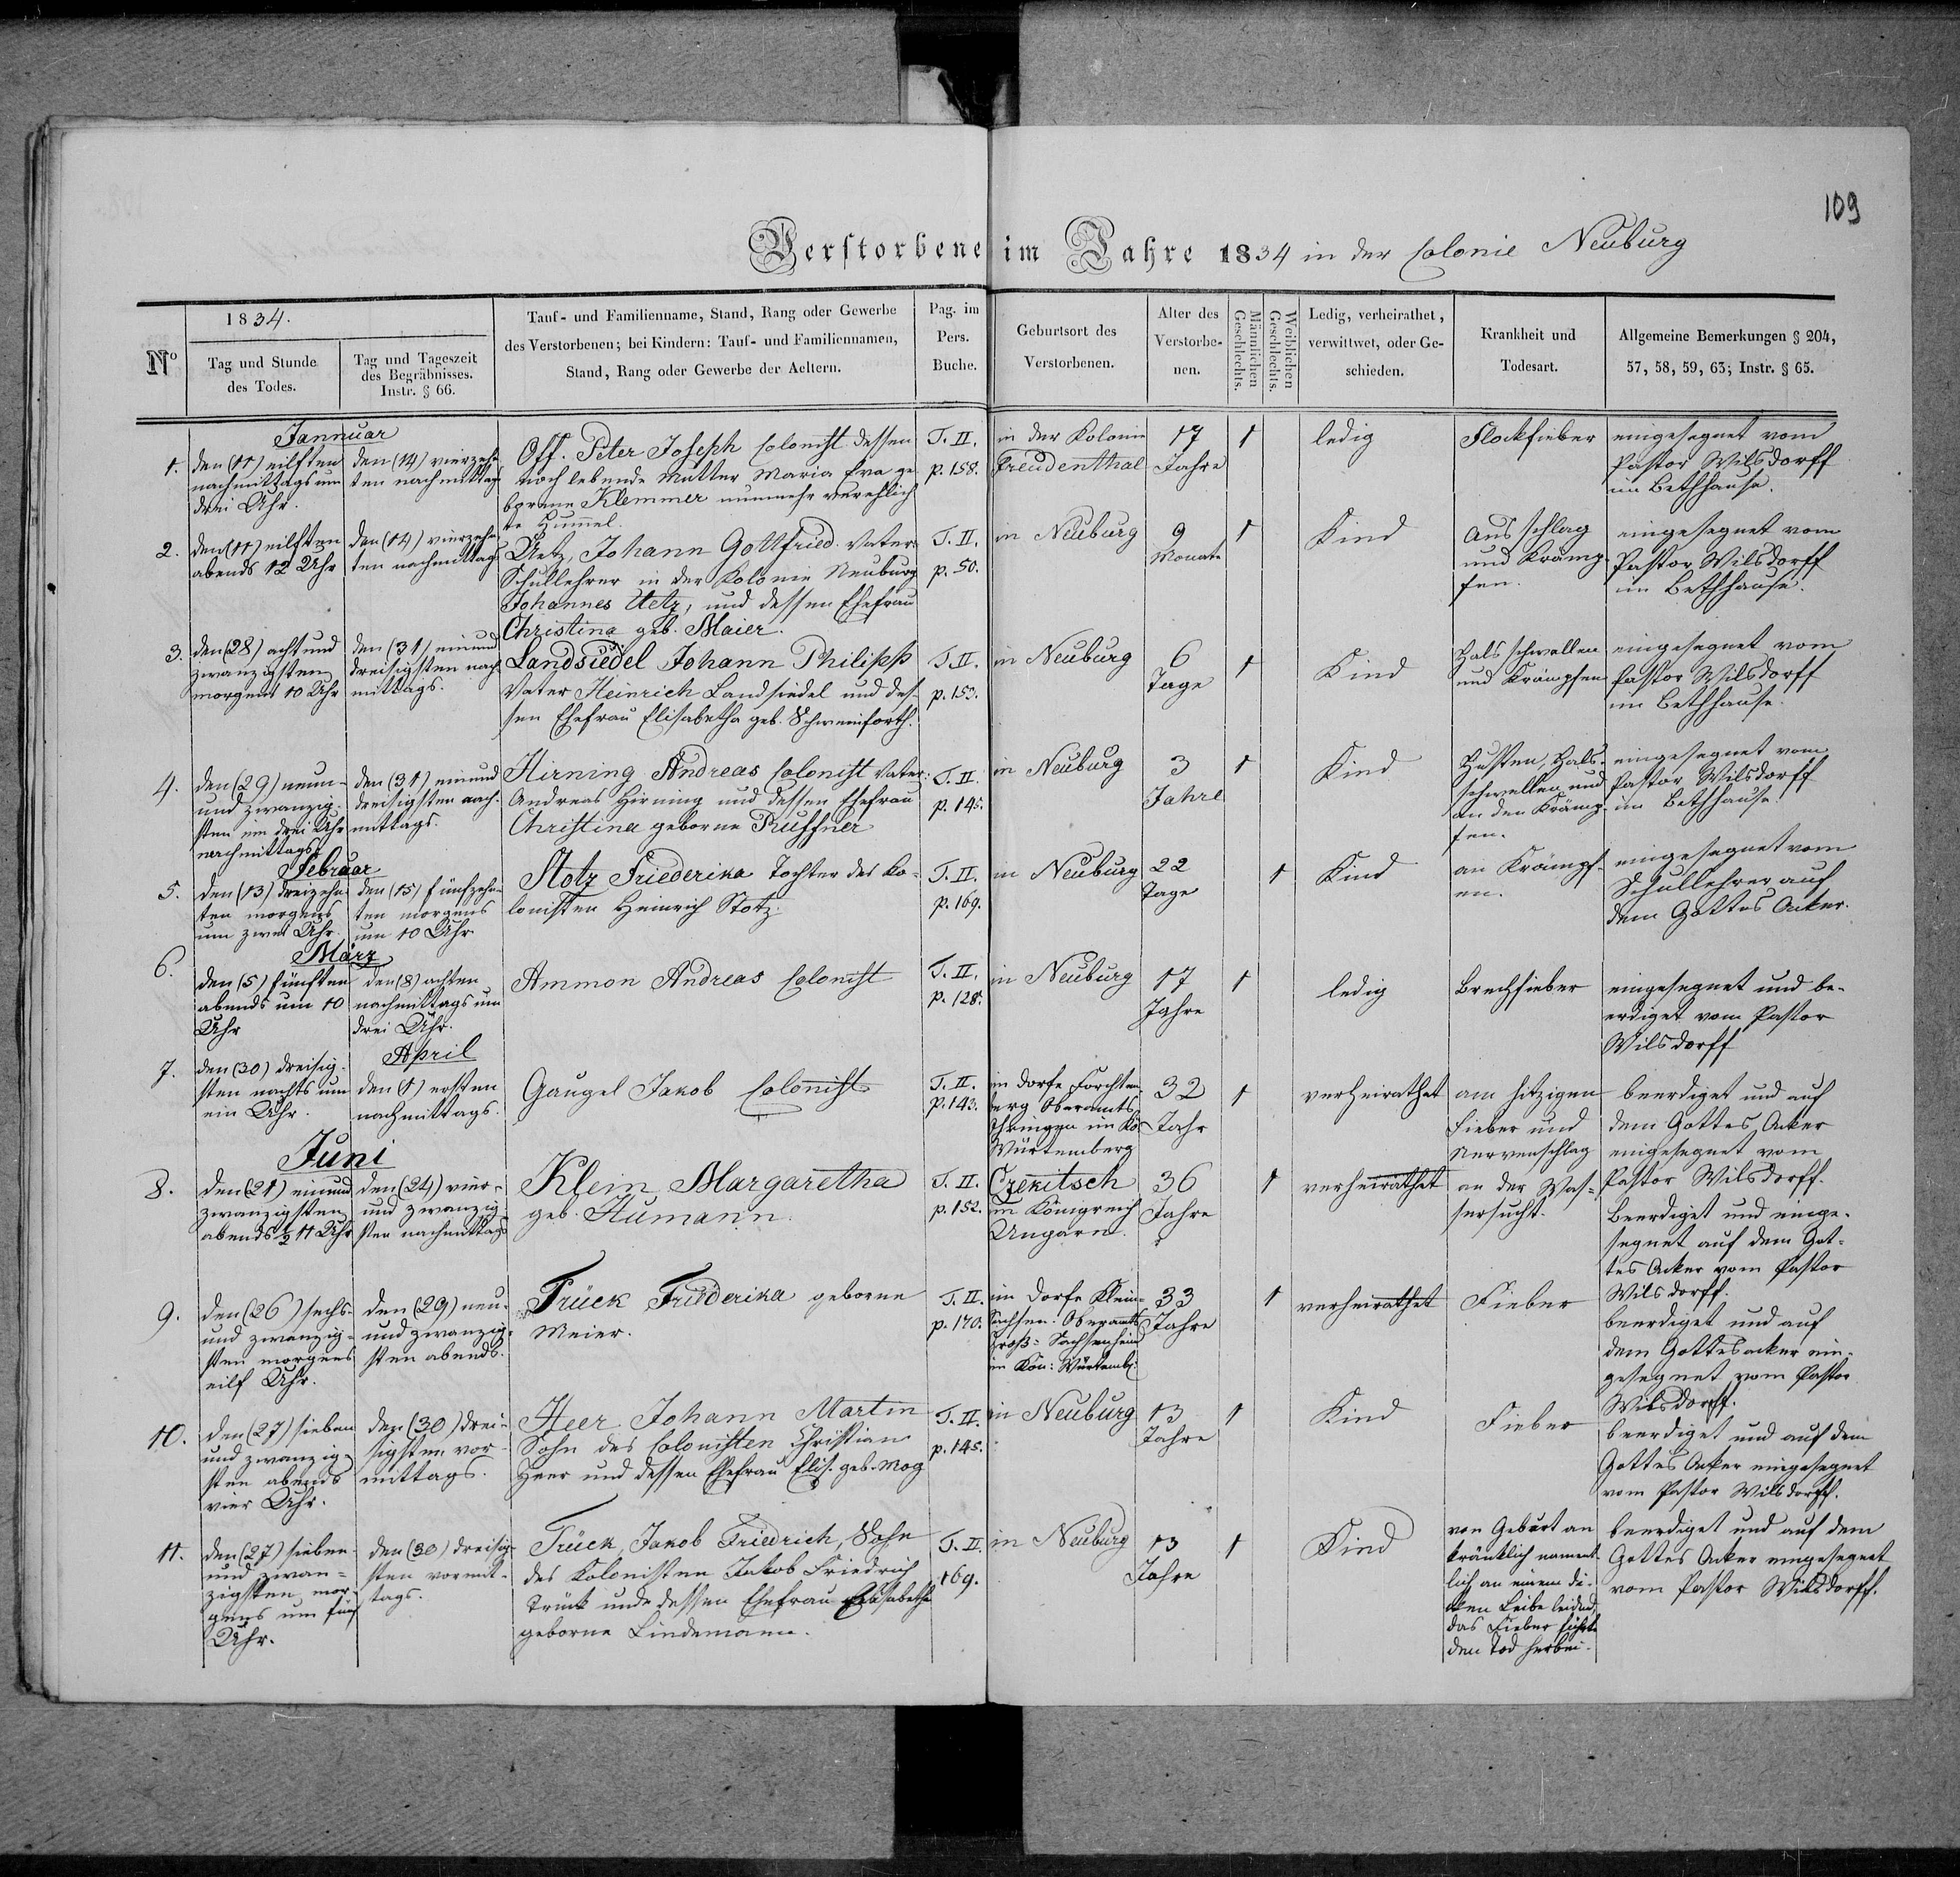 109
Verstorbene im Jahre 1834 in der Colonie Neuburg
Nº
1834.
Tag und Stunde
des Todes.
Tag und Tageszeit
des Begräbnisses.
Instr. § 66.
Tauf- und Familienname, Stand, Rang oder Gewerbe
des Verstorbenen; bei Kindern: Tauf- und Familiennamen,
Stand, Rang oder Gewerbe der Aeltern.
Pag. im
Pers.
Buche.
Geburtsort des
Verstorbenen.
Alter des
Verstorbe-
nen.
Männlichen
Geschlechts.
Weiblichen
Geschlechts.
Ledig, verheirathet,
verwittwet, oder Ge-
schieden.
Krankheit und
Todesart.
Allgemeine Bemerkungen § 204,
57, 58, 59, 63; Instr. § 65.
Jannuar
1.
den (11) eilften
nachmittags um
drei Uhr.
den (14) vierzehn-
ten nachmittag
Off. Peter Joseph Colonist dessen
noch lebende Mutter Maria Eva ge
borene Klemmer nunmehr verehlich
te Hummel.
T. II.
p. 158.
in der Kolonie
Freudenthal
17
Jahre
1
ledig
Flockfieber
eingesegnet vom
Pastor Wilsdorff
im Bethhause.
2.
den (11) eilften
abends 12 Uhr
den (14) vierzehn-
ten nachmittag
Uetz, Johann Gottfried. Vater
Schullehrer in der Kolonie Neuburg
Johannes Uetz, und dessen Ehefrau
Christina geb. Maier.
T. II.
p. 50.
in Neuburg
9
Monate
1
Kind
Ausschlag
und Krämp
fen.
eingesegnet vom
Pastor Wilsdorff
im Bethhause.
3.
den (28) acht und
zwanzigsten
morgens 10 Uhr
den (31) einund
dreisigsten nach
mittags.
Landsiedel Johann Philipp
Vater Heinrich Landsiedel und des-
sen Ehefrau Elisabetha geb. Schweinforth.
T. II.
p. 153.
in Neuburg
6
Tage
1
Kind
Hals schwellen
und Krämpfen
eingesegnet vom
Pastor Wilsdorff
im Bethhause.
4.
den (29) neun-
und zwanzig-
sten um drei Uhr
nachmittags
den (31) einund
dreisigsten nach-
mittags.
Hirning Andreas Colonist Vater:
Andreas Hirning und dessen Ehefrau
Christina geborne Ruffner
T. II.
p. 145.
in Neuburg
3
Jahre
1
Kind
Husten, Hals-
schwellen und
an den Krämp-
fen.
eingesegnet vom
Pastor Wilsdorff
im Bethhause.
Februar
5.
den (13) dreizehn-
ten morgens
um zwei Uhr.
den (15) fünfzehn-
ten morgens
um 10 Uhr
Stotz Friederika Tochter des Ko-
lonisten Heinrich Stotz.
T. II.
p. 169.
in Neuburg
22
Tage
1
Kind
an Krämpf-
en.
eingesegnet vom
Schullehrer auf
dem Gottes Acker.
März
6.
den (5) fünften
abends um 10
Uhr
den (8) achten
nachmittags um
drei Uhr.
Ammon Andreas Colonist
T. II.
p. 128.
in Neuburg
17
Jahre
1
ledig
Brechfieber
eingesegnet und be-
erdiget vom Pastor
Wilsdorff
7.
den (30) dreisig-
sten nachts um
ein Uhr.
April
den (1) ersten
nachmittags.
Gaugel Jakob Colonist
T. II.
p. 143.
im Dorfe Forchten
berg Oberamts
Ehringen im Kö
Würtemberg
32
Jahr
1
verheirathet
am hitzigen
Fieber und
Nervenschlag
beerdiget und auf
dem Gottes Acker
eingesegnet vom
Pastor Wilsdorff.
Juni
8.
den (21) einund
zwanzigsten
abends ½ 11 Uhr
den (24) vier-
und zwanzig-
sten nachmittags
Klein Margaretha
geb. Humann.
T. II.
p. 152.
Czekitsch
im Königreich
Ungarn.
36
Jahre
1
verheirathet
an der Was-
sersucht.
Beerdiget und einge-
segnet auf dem Got-
tes Acker vom Pastor
Wilsdorff.
9.
den (26) sechs-
und zwanzig-
sten morgens
eilf Uhr.
den (29) neu-
und zwanzig-
sten abends.
Trück Friederika geborne
Meier.
T. II.
p. 170.
im Dorfe Klein-
Sachsen. Oberamts
Groß-Sachsenheim
im Kön: Würtemb:
33
Jahre
1
verheirathet
Fieber
beerdiget und auf
dem Gottesacker ein-
gesegnet vom Pastor
Wilsdorff.
10.
den (27) sieben
und zwanzig-
sten abends
vier Uhr.
den (30) drei-
sigsten vor-
mittags.
Heer Johann Martin
Sohn des Colonisten Christian
Heer und dessen Ehefrau Elis. geb. Mog
T. II.
p. 145.
in Neuburg
13
Jahre
1
Kind
Fieber
beerdiget und auf dem
Gottes Acker eingesegnet
vom Pastor Wilsdorff.
11.
den (27) sieben-
und zwan-
zigsten mor-
gens um fünf
Uhr.
den (30) dreisig-
sten vormit-
tags.
Trück, Jakob Friedrich, Sohn
des Kolonisten Jakob Friedrich
Trück und dessen Ehefrau Elisabetha
geborne Lindemann.
T. II.
169.
in Neuburg
13
Jahre
1
Kind
von Geburt an
kränklich nament-
lich an einem di-
cken Leibe leidend,
das Fieber führte
den Tod herbei.
beerdiget und auf dem
Gottes Acker eingesegnet
vom Pastor Wilsdorff.